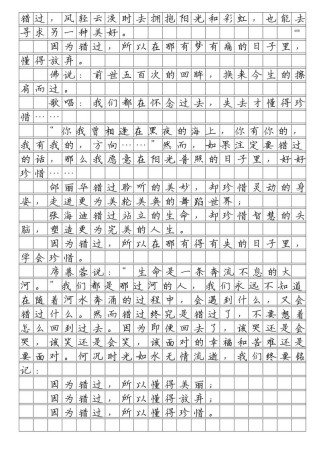 错过，风轻云淡时去拥抱阳光和彩虹，也能去
寻求另一种美好。
因为错过，所以在那有梦有痛的日子里，
懂得放弃。
佛说：前世五百次的回眸，换来今生的擦
肩而过。
歌唱：我们都在怀念过去，失去才懂得珍
惜……
“你我曾相逢在黑夜的海上，你有你的，
我有我的，方向……”然而，如果注定要错过
的话，那么我愿意在阳光普照的日子里，好好
珍惜……
邰丽华错过聆听的美妙，却珍惜灵动的身
姿，走进更为美轮美奂的舞蹈世界；
张海迪错过站立的生命，却珍惜智慧的头
脑，塑造更为完美的人生。
因为错过，所以在那有得有失的日子里，
学会珍惜。
席慕蓉说：“生命是一条奔流不息的大
河。”我们都是那过河的人，我们永远不知道
在随着河水奔涌的过程中，会遇到什么，又会
错过什么。然而错过终究是错过了，不要想着
怎么回到过去。因为即便回去了，该哭还是会
哭，该笑还是会笑，该面对的幸福和苦难还是
要面对。何况时光如水无情流逝，我们终要铭
记：
因为错过，所以懂得美丽；
因为错过，所以懂得放弃；
因为错过，所以懂得珍惜。